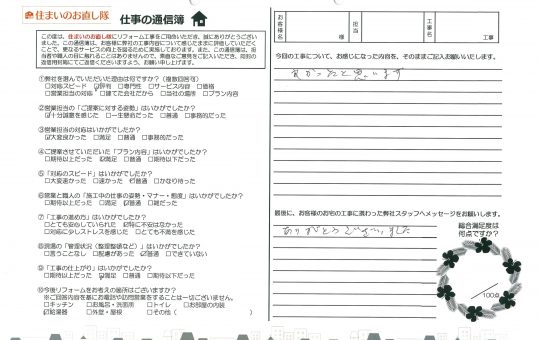 住まいのお直し隊 仕事の通信簿
この度は、住まいのお直し隊にリフォーム工事をご用命いただき、誠にありがとうござい
ました。この通信簿は、お客様に弊社の工事内容について感じたままに評価していただく
ことで、更なるサービスの向上を図るために実施しております。また、この通信簿は、担
①弊社を選んでいただいた理由は何ですか?(複数回答可)
□対応スピード ☑評判 □専門性 □サービス内容 □価格
□営業担当の対応 □建てた会社だから □当社の場所 □プラン内容
②営業担当の「ご提案に対する姿勢」はいかがでしたか?
☑十分誠意を感じた □一生懸命だった □普通 □事務的だった
③営業担当の対応はいかがでしたか?
☑大変良かった □満足 □普通 □事務的だった
④ご提案させていただいた「プラン内容」はいかがでしたか?
□期待以上だった ☑満足 □普通 □期待以下だった
⑤「対応のスピード」はいかがでしたか?
□大変速かった □速かった ☑普通 □かなり待った
⑥営業と職人の「施工中の仕事の姿勢・マナー・態度」はいかがでしたか?
□期待以上だった □満足 ☑普通 □雑だった
⑦「工事の進め方」はいかがでしたか?
□とても安心していられた ☑特に不安はなかった
□対応に少しストレスを感じた □とても不満を感じた
⑧現場の「管理状況(整理整頓など)」はいかがでしたか?
□言うことなし □配慮があった ☑普通 □できていない
⑨「工事の仕上がり」はいかがでしたか?
□期待以上だった ☑満足 □普通 □期待以下だった
⑩今後リフォームをお考えの箇所はございますか?
※ご回答内容を基にお電話や訪問営業をすることは一切ございません。
□キッチン □お風呂・洗面所 □トイレ □お部屋の内装
☑給湯器 □外壁・屋根 □その他(
お客様名 担当 工事名 工事
今回の工事について、お感じになった内容を、そのままご記入お願いいたします。
良かったと思います
最後に、お客様のお宅の工事に携わった弊社スタッフへメッセージをお願いします。
ありがとうございました
総合満足度は
何点ですか?
/100点